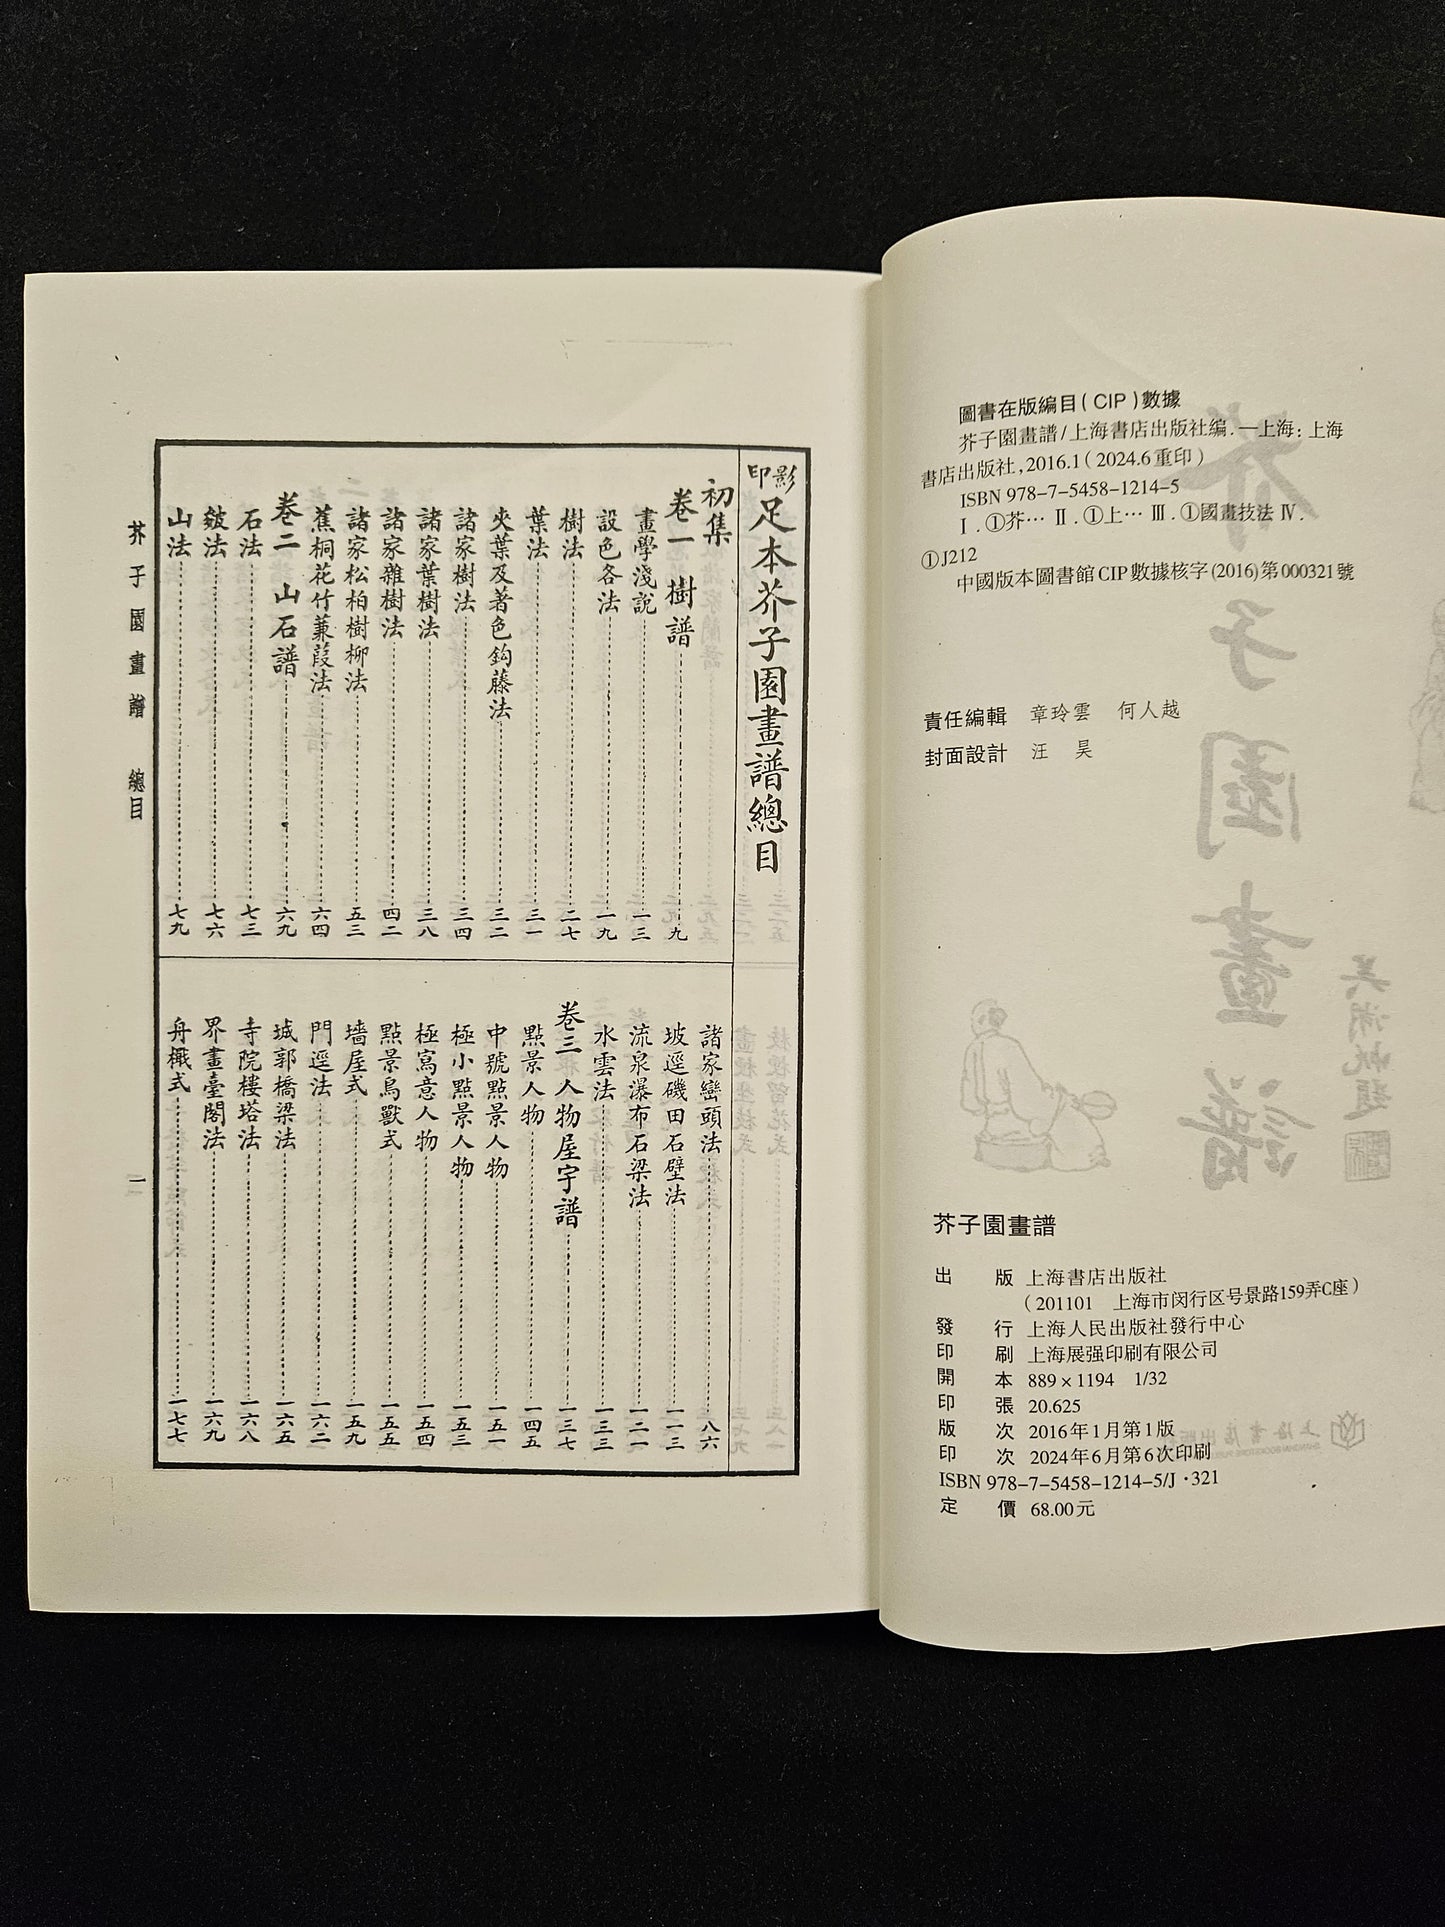 圖書在版編目(CIP)數據
芥子園畫譜/上海書店出版社編.—上海：上海
書店出版社,2016.1(2024.6重印)
ISBN 978-7-5458-1214-5
Ⅰ.①芥… Ⅱ.①上… Ⅲ.①國畫技法 Ⅳ.
①J212
中國版本圖書館CIP數據核字(2016)第000321號
責任編輯 章玲雲 何人越
封面設計 汪昊
芥子園畫譜
出版 上海書店出版社
(201101 上海市闵行区号景路159弄C座)
發行 上海人民出版社發行中心
印刷 上海展强印刷有限公司
開本 889×1194 1/32
印張 20.625
版次 2016年1月第1版
印次 2024年6月第6次印刷
ISBN 978-7-5458-1214-5/J·321
定價 68.00元
影印足本芥子園畫譜總目
初集
卷一 樹譜 九
畫學淺說 一三
設色各法 一九
樹法 二七
葉法 三一
夾葉及著色鈎藤法 三二
諸家樹法 三四
諸家葉樹法 三八
諸家雜樹法 四二
諸家松柏樹柳法 五三
蕉桐花竹蒹葭法 六四
卷二 山石譜 六九
石法 七三
皴法 七六
山法 七九
諸家巒頭法 八六
坡逕磯田石壁法 一一三
流泉瀑布石梁法 一二一
水雲法 一三三
卷三 人物屋宇譜 一三七
點景人物 一四五
中號點景人物 一五一
極小點景人物 一五三
極寫意人物 一五四
點景鳥獸式 一五五
墻屋式 一五九
門逕法 一六二
城郭橋梁法 一六五
寺院樓塔法 一六八
界畫臺閣法 一六九
舟檝式 一七七
芥子園畫譜 總目
一